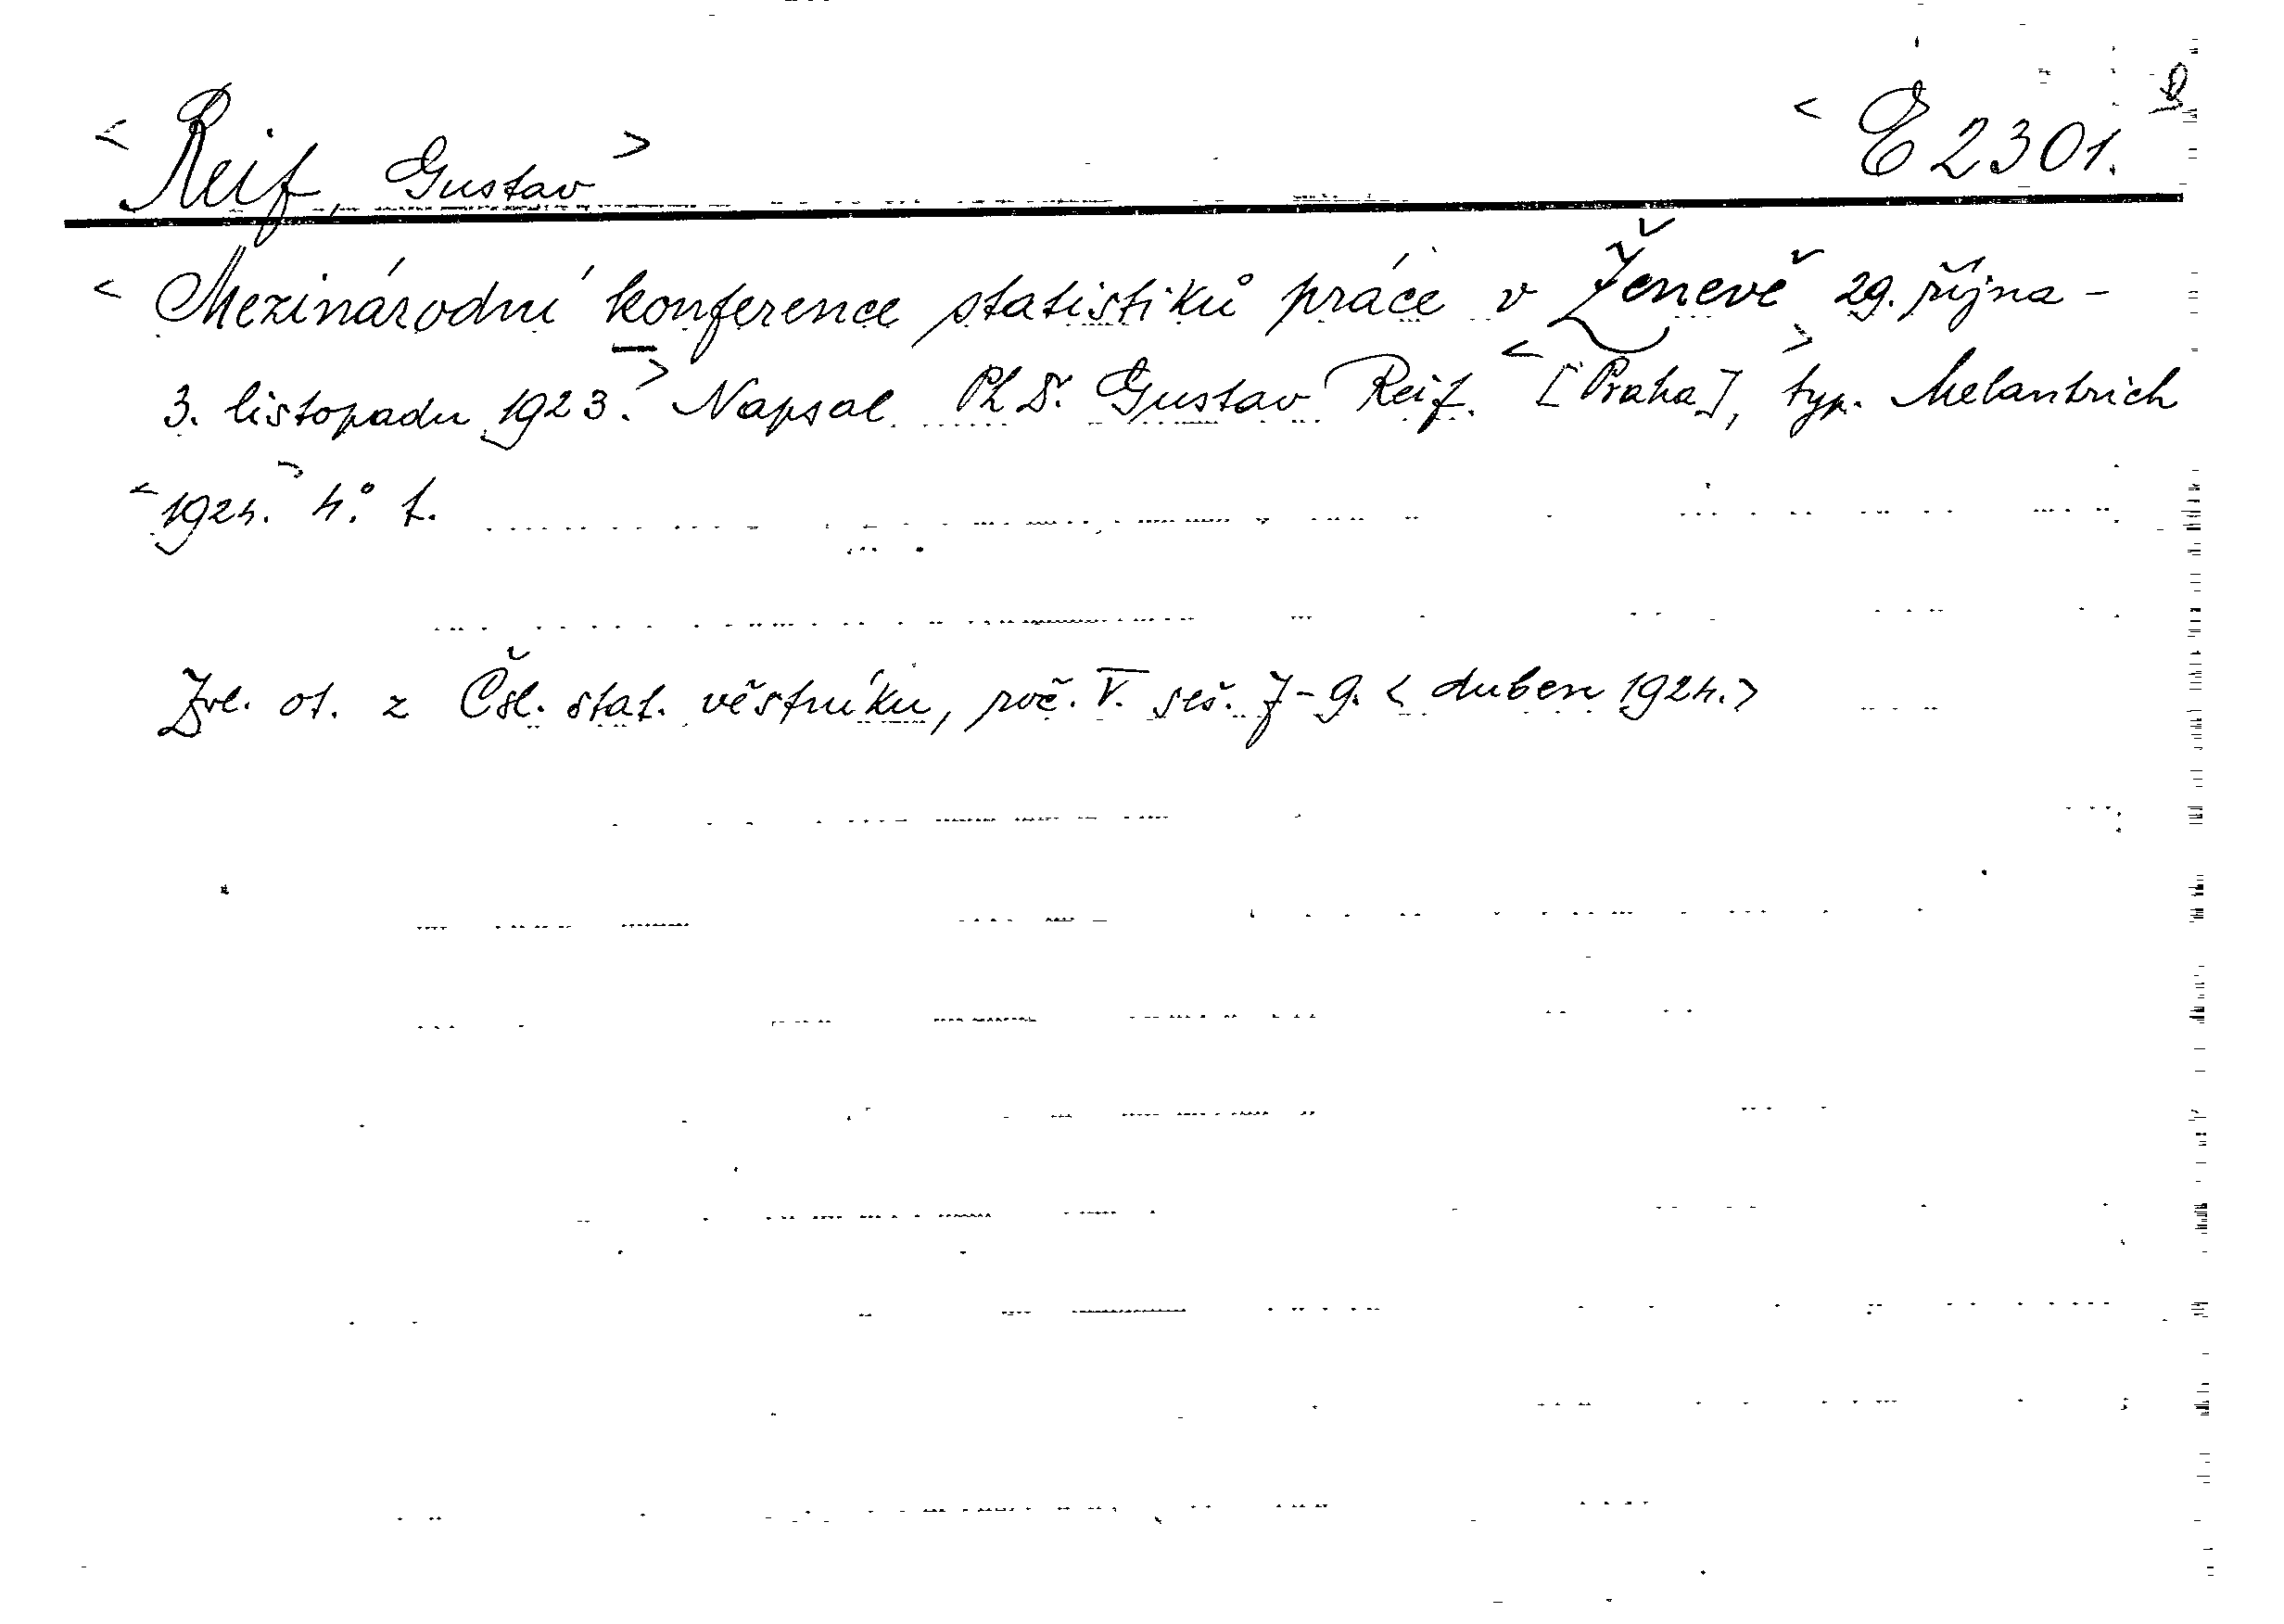 < Reif, Gustav > < E 2301.
< Mezinárodní konference statistiků práce v Ženevě 29. října -
3. listopadu 1923. > Napsal Ph Dr. Gustav Reif. < [Praha], > typ. Melantrich
< 1924. > 4.° f.
Zvl. ot. z Čsl. stat. věstníku, roč. V. seš. 7-9. < duben 1924. >